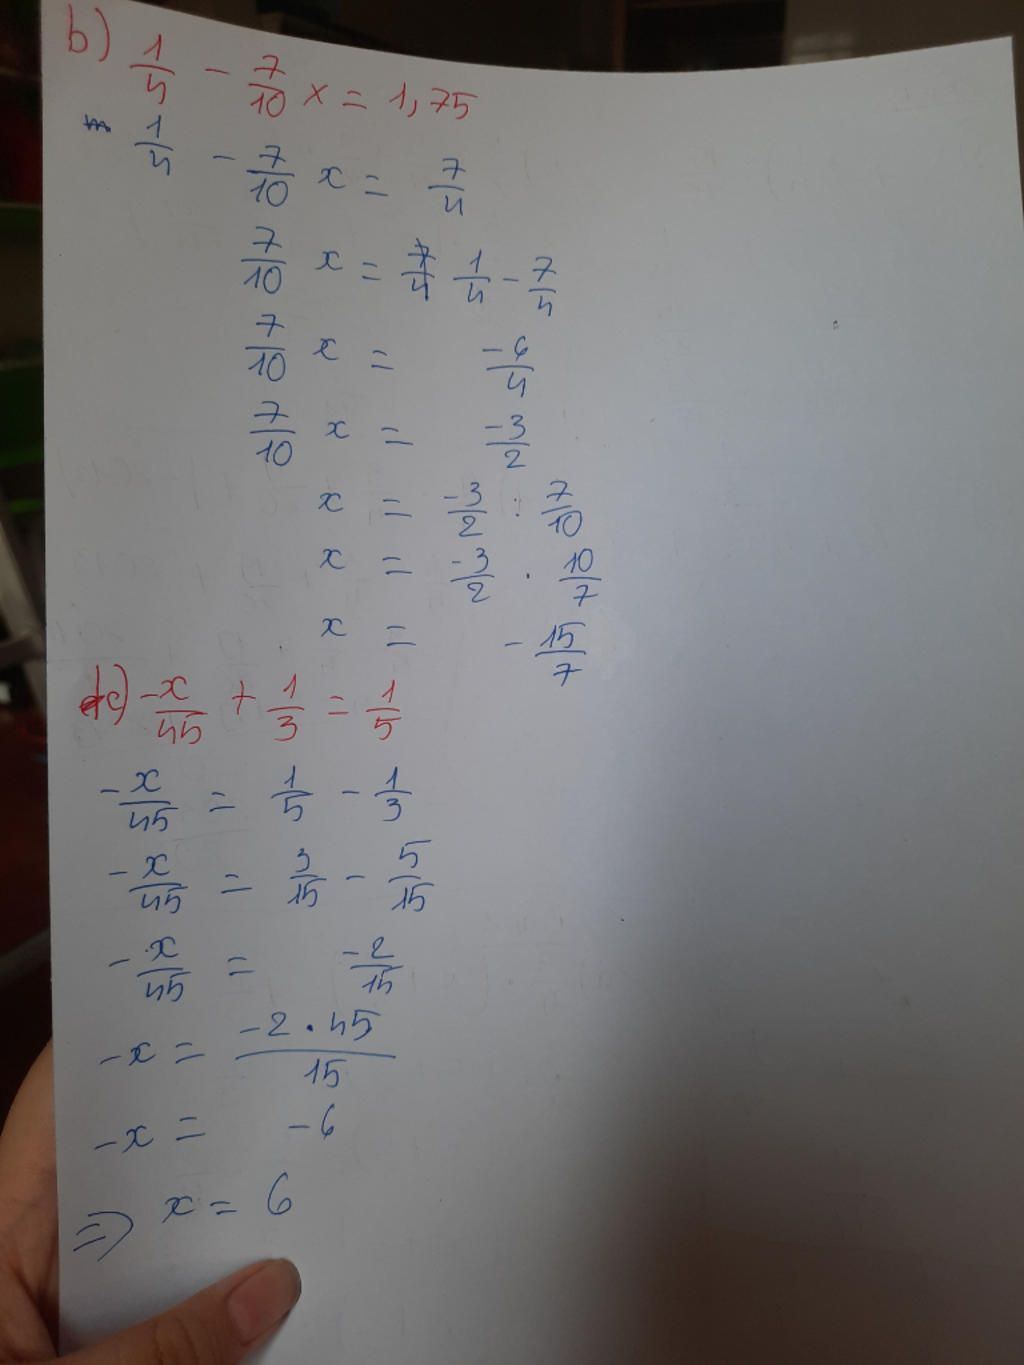 b) 1/4 - 7/10 x = 1,75
1/4 - 7/10 x = 7/4
7/10 x = 7/4 1/4 - 7/4
7/10 x = -6/4
7/10 x = -3/2
x = -3/2 : 7/10
x = -3/2 . 10/7
x = - 15/7
c) -x/45 + 1/3 = 1/5
-x/45 = 1/5 - 1/3
-x/45 = 3/15 - 5/15
-x/45 = -2/15
-x = -2 . 45/15
-x = -6
=> x = 6